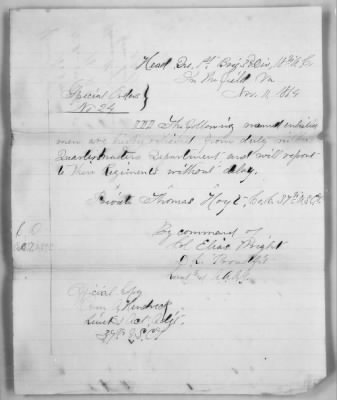 Head Qrs. 1st Brig 3d Div. 18th A.C.
In the field Va
Nov. 11 1864
Special Orders
No 24
III The following named enlisted
men are hereby relieved from duty in the
Quartermasters Department and will report
to their Regiments without delay.
Private Thomas Hoyt, Co. 37th U.S.C.T.
By command of
Col Elias Wright
Official Copy
Lieut & Act. Adjt.
37th U.S.C.T.